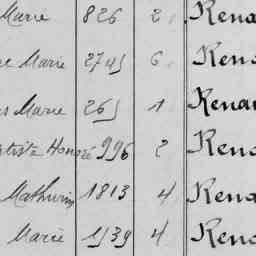 Marie 826 2 Rena
e Marie 2745 6 Rena
s Marie 265 1 Rena
ptiste Honoré 996 2 Rena
Mathurin 1813 4 Rena
Marie 1539 4 Rena